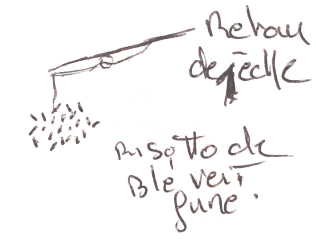 Retour
de pêche
Risotto de
Blé vert
fumé.